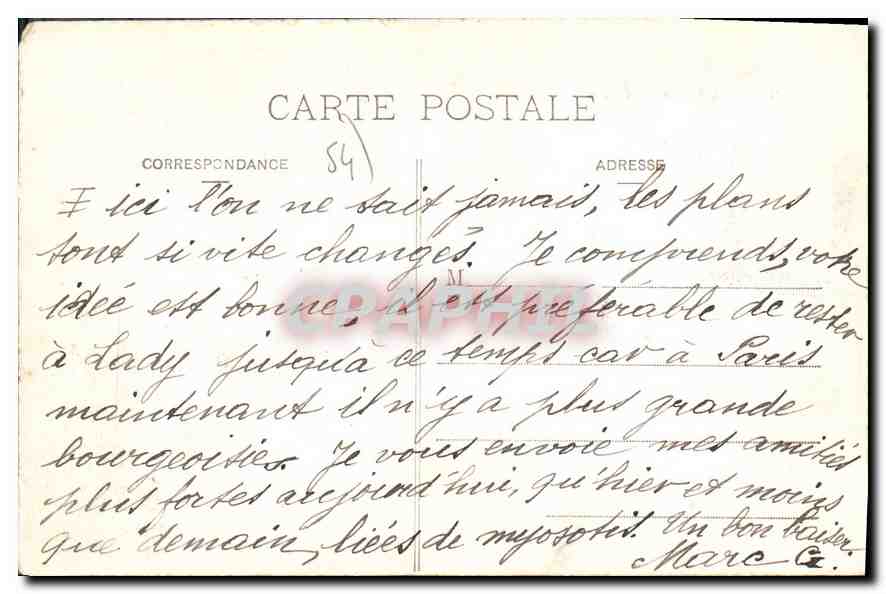 CARTE POSTALE
54)
CORRESPONDANCE
ADRESSE
I ici l'on ne sait jamais, les plans
sont si vite changés. Je comprends, votre
M
idée est bonne, il est préférable de rester
CPAPHIL
à Lady jusqu'à ce temps car à Paris
maintenant il n'y a plus grande
bourgeoisie. Je vous envoie mes amitiés
plus fortes aujourd'hui, qu'hier et moins
que demain, liées de myosotis. Un bon baiser.
Marc G.